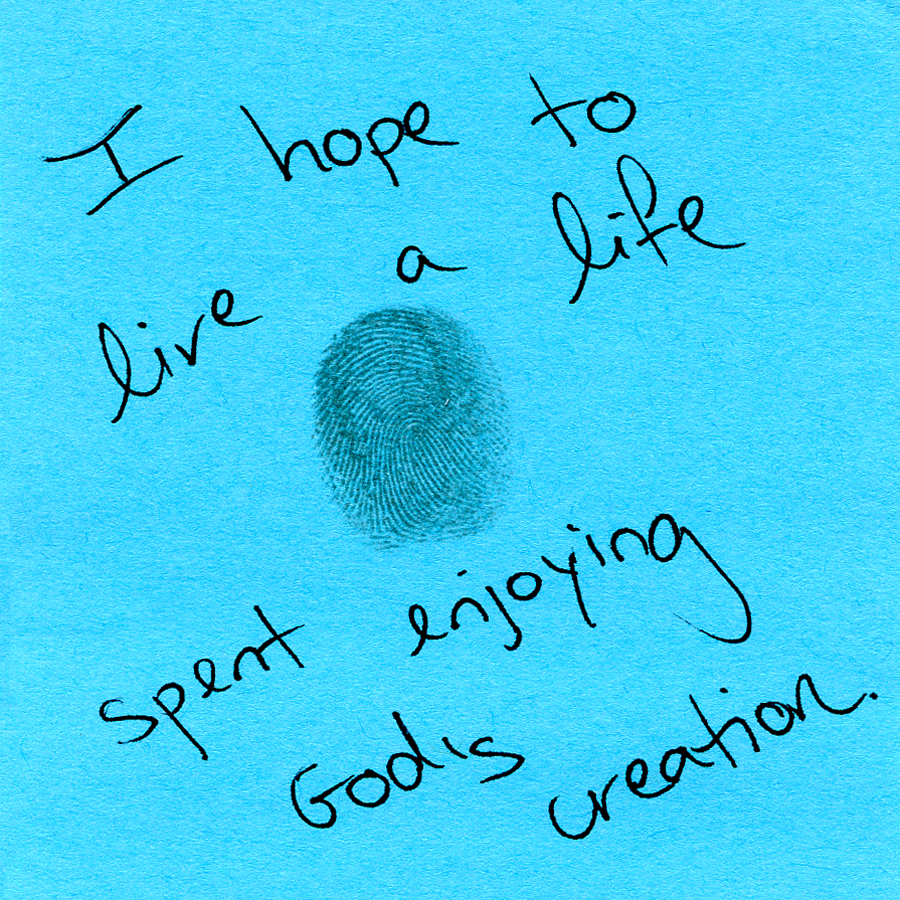 I hope to
live a life
spent enjoying
God's creation.